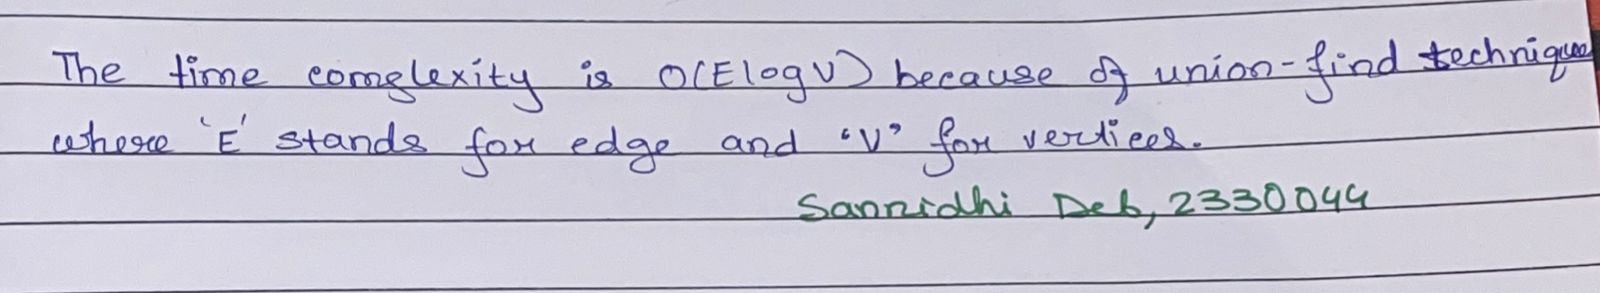 The time complexity is O(E log V) because of union-find technique
where 'E' stands for edge and 'V' for vertices.
Sannidhi Deb, 2330044